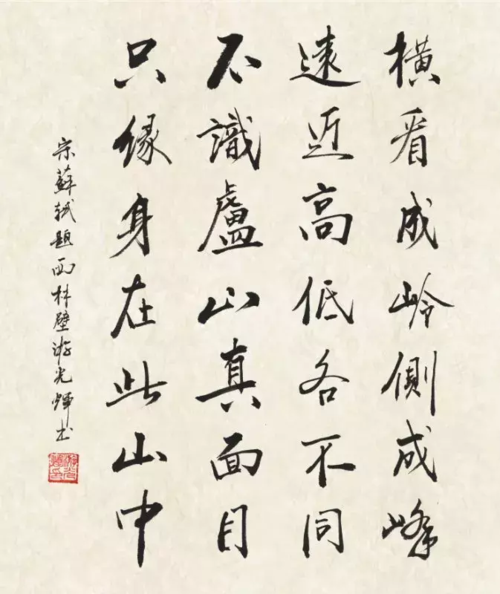 横看成岭侧成峰
遠近高低各不同
不識廬山真面目
只缘身在此山中
宗蘇軾題西林壁游光輝书